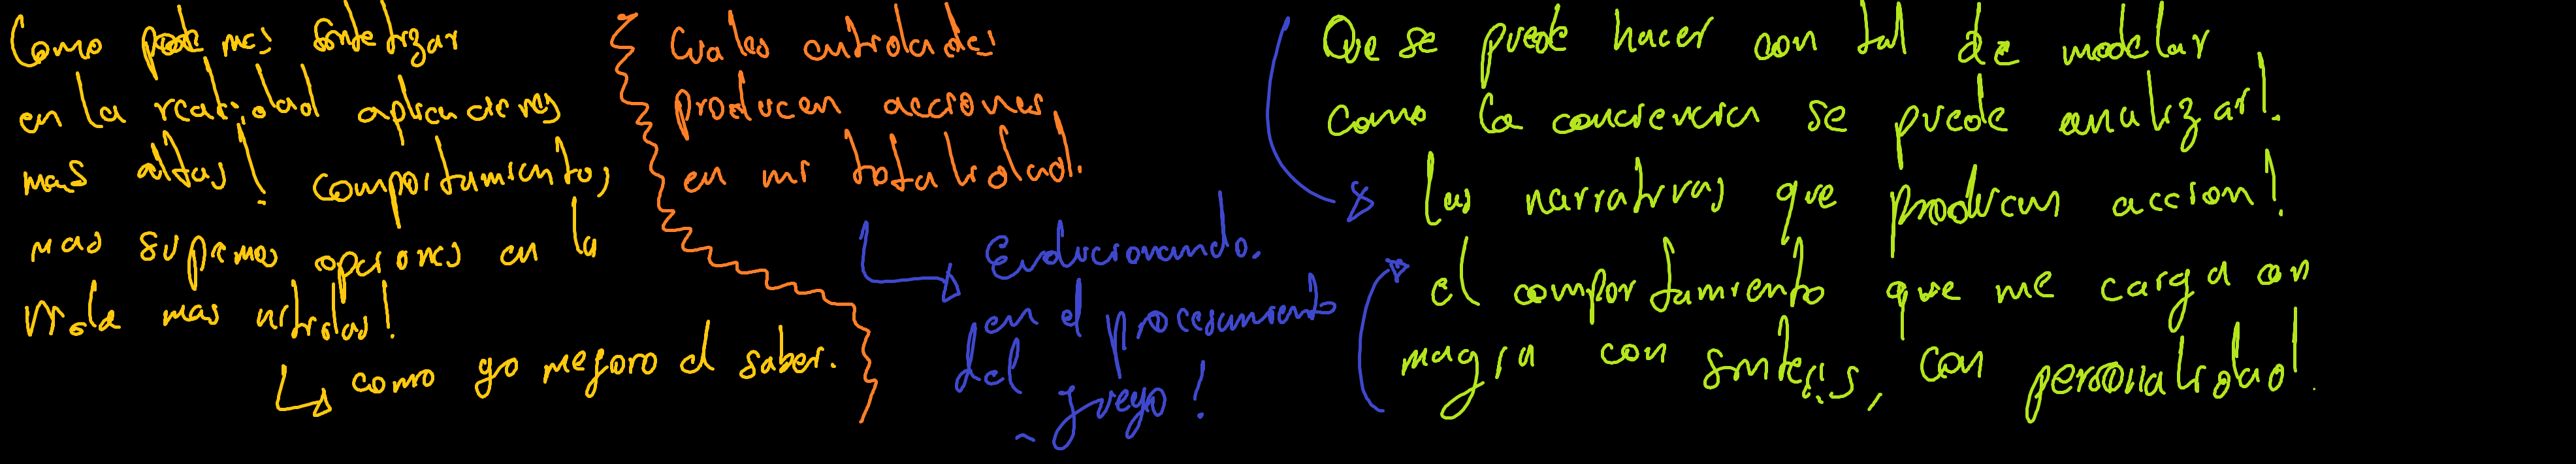 Como podemos sintetizar
en la realidad aplicaciones
mas altas! comportamientos
mas supremos opciones en la
vida mas nitidas!
como yo mejoro el saber.
Cuales entidades
producen acciones
en mi totalidad.
Evolucionando.
en el procesamiento
del
juego!
Que se puede hacer con tal de modelar
como la conciencia se puede analizar!.
las narrativas que producen accion!
el comportamiento que me carga con
magia con sintesis, con personalidad!